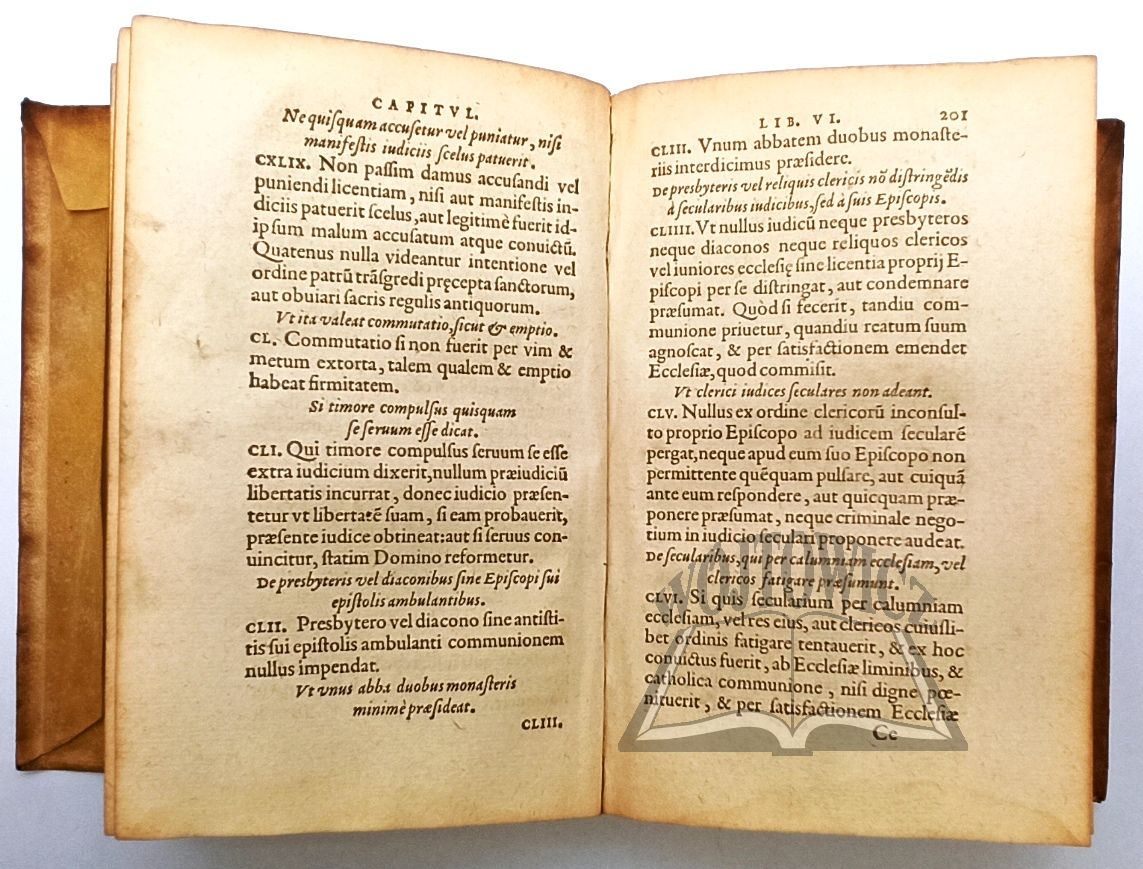 CAPITVL.
Ne quiſquam accuſetur vel puniatur, niſi
manifeſtis iudiciis ſcelus patuerit.
CXLIX. Non paſſim damus accuſandi vel
puniendi licentiam, niſi aut manifeſtis in-
diciis patuerit ſcelus, aut legitimè fuerit id-
ipſum malum accuſatum atque conuictũ.
Quatenus nulla videantur intentione vel
ordine patrũ trãſgredi pręcepta ſanctorum,
aut obuiari ſacris regulis antiquorum.
Vt ita valeat commutatio, ſicut & emptio.
CL. Commutatio ſi non fuerit per vim &
metum extorta, talem qualem & emptio
habeat firmitatem.
Si timore compulſus quiſquam
ſe ſeruum eſſe dicat.
CLI. Qui timore compulſus ſeruum ſe eſſe
extra iudicium dixerit, nullum præiudiciũ
libertatis incurrat, donec iudicio præſen-
tetur vt libertatẽ ſuam, ſi eam probauerit,
præſente iudice obtineat: aut ſi ſeruus con-
uincitur, ſtatim Domino reformetur.
De presbyteris vel diaconibus ſine Epiſcopi ſui
epiſtolis ambulantibus.
CLII. Presbytero vel diacono ſine antiſti-
tis ſui epiſtolis ambulanti communionem
nullus impendat.
Vt vnus abba duobus monaſteris
minimè præſideat.
CLIII.
LIB. VI. 201
CLIII. Vnum abbatem duobus monaſte-
riis interdicimus præſidere.
De presbyteris vel reliquis clericis nõ diſtringẽdis
à ſecularibus iudicibus, ſed à ſuis Epiſcopis.
CLIIII. Vt nullus iudicũ neque presbyteros
neque diaconos neque reliquos clericos
vel iuniores eccleſię ſine licentia proprij E-
piſcopi per ſe diſtringat, aut condemnare
præſumat. Quòd ſi fecerit, tandiu com-
munione priuetur, quandiu reatum ſuum
agnoſcat, & per ſatisfactionem emendet
Eccleſiæ, quod commiſit.
Vt clerici iudices ſeculares non adeant.
CLV. Nullus ex ordine clericorũ inconſul-
to proprio Epiſcopo ad iudicem ſecularẽ
pergat, neque apud eum ſuo Epiſcopo non
permittente quẽquam pulſare, aut cuiquã
ante eum reſpondere, aut quicquam præ-
ponere præſumat, neque criminale nego-
tium in iudicio ſeculari proponere audeat.
De ſecularibus, qui per calumniam eccleſiam, vel
clericos fatigare præſumunt.
CLVI. Si quis ſecularium per calumniam
eccleſiam, vel res eius, aut clericos cuiuſli-
bet ordinis fatigare tentauerit, & ex hoc
conuictus fuerit, ab Eccleſiæ liminibus, &
catholica communione, niſi digne pœ-
nituerit, & per ſatisfactionem Eccleſiæ
Cc
WÓJTOWICZ